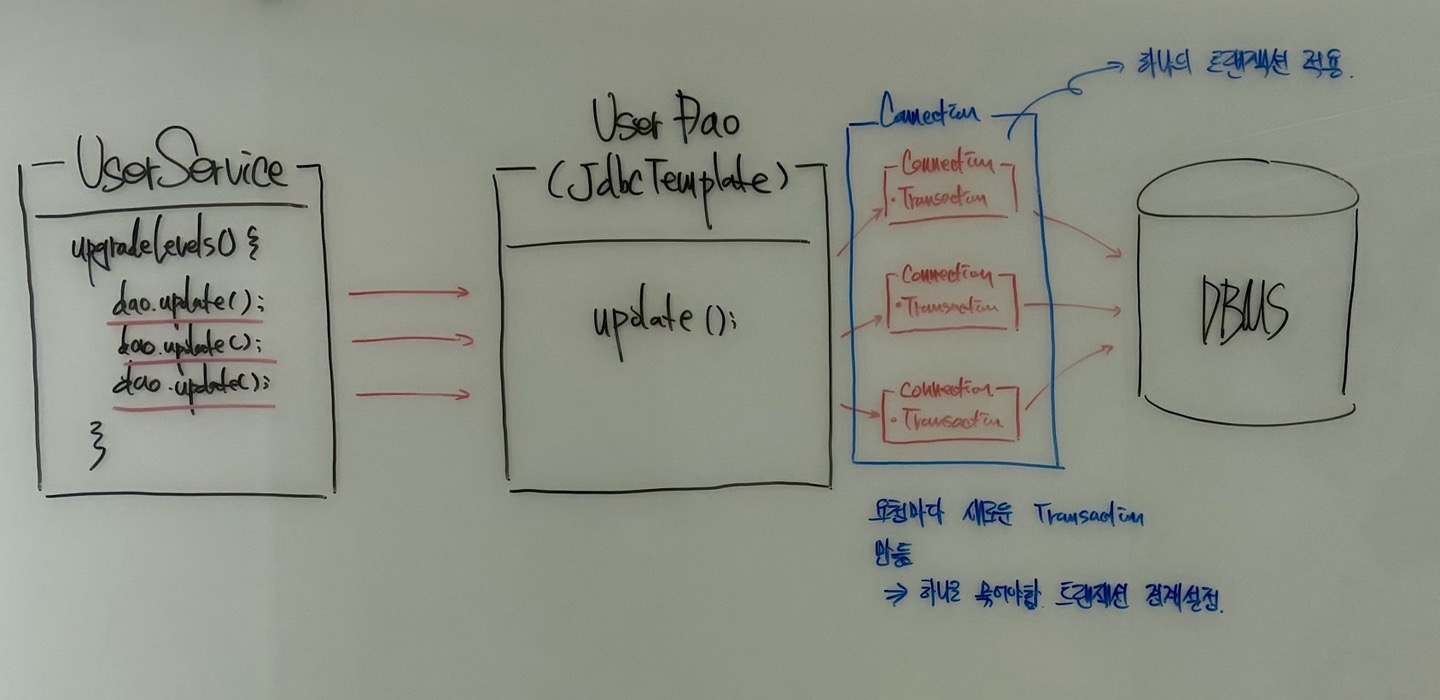 UserService
upgradeLevels() {
dao.update();
dao.update();
dao.update();
}
User Dao
(JdbcTemplate)
update();
Connection
하나의 트랜잭션 적용.
Connection
· Transaction
Connection
· Transaction
Connection
· Transaction
DBMS
요청마다 새로운 Transaction
만듦
⇒ 하나로 묶어야함. 트랜잭션 경계설정.